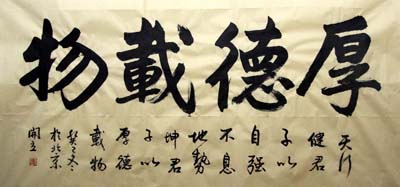 厚德載物
天行
健君
子以
自强
不息
地勢
坤君
子以
厚德
載物
癸巳冬
於北京